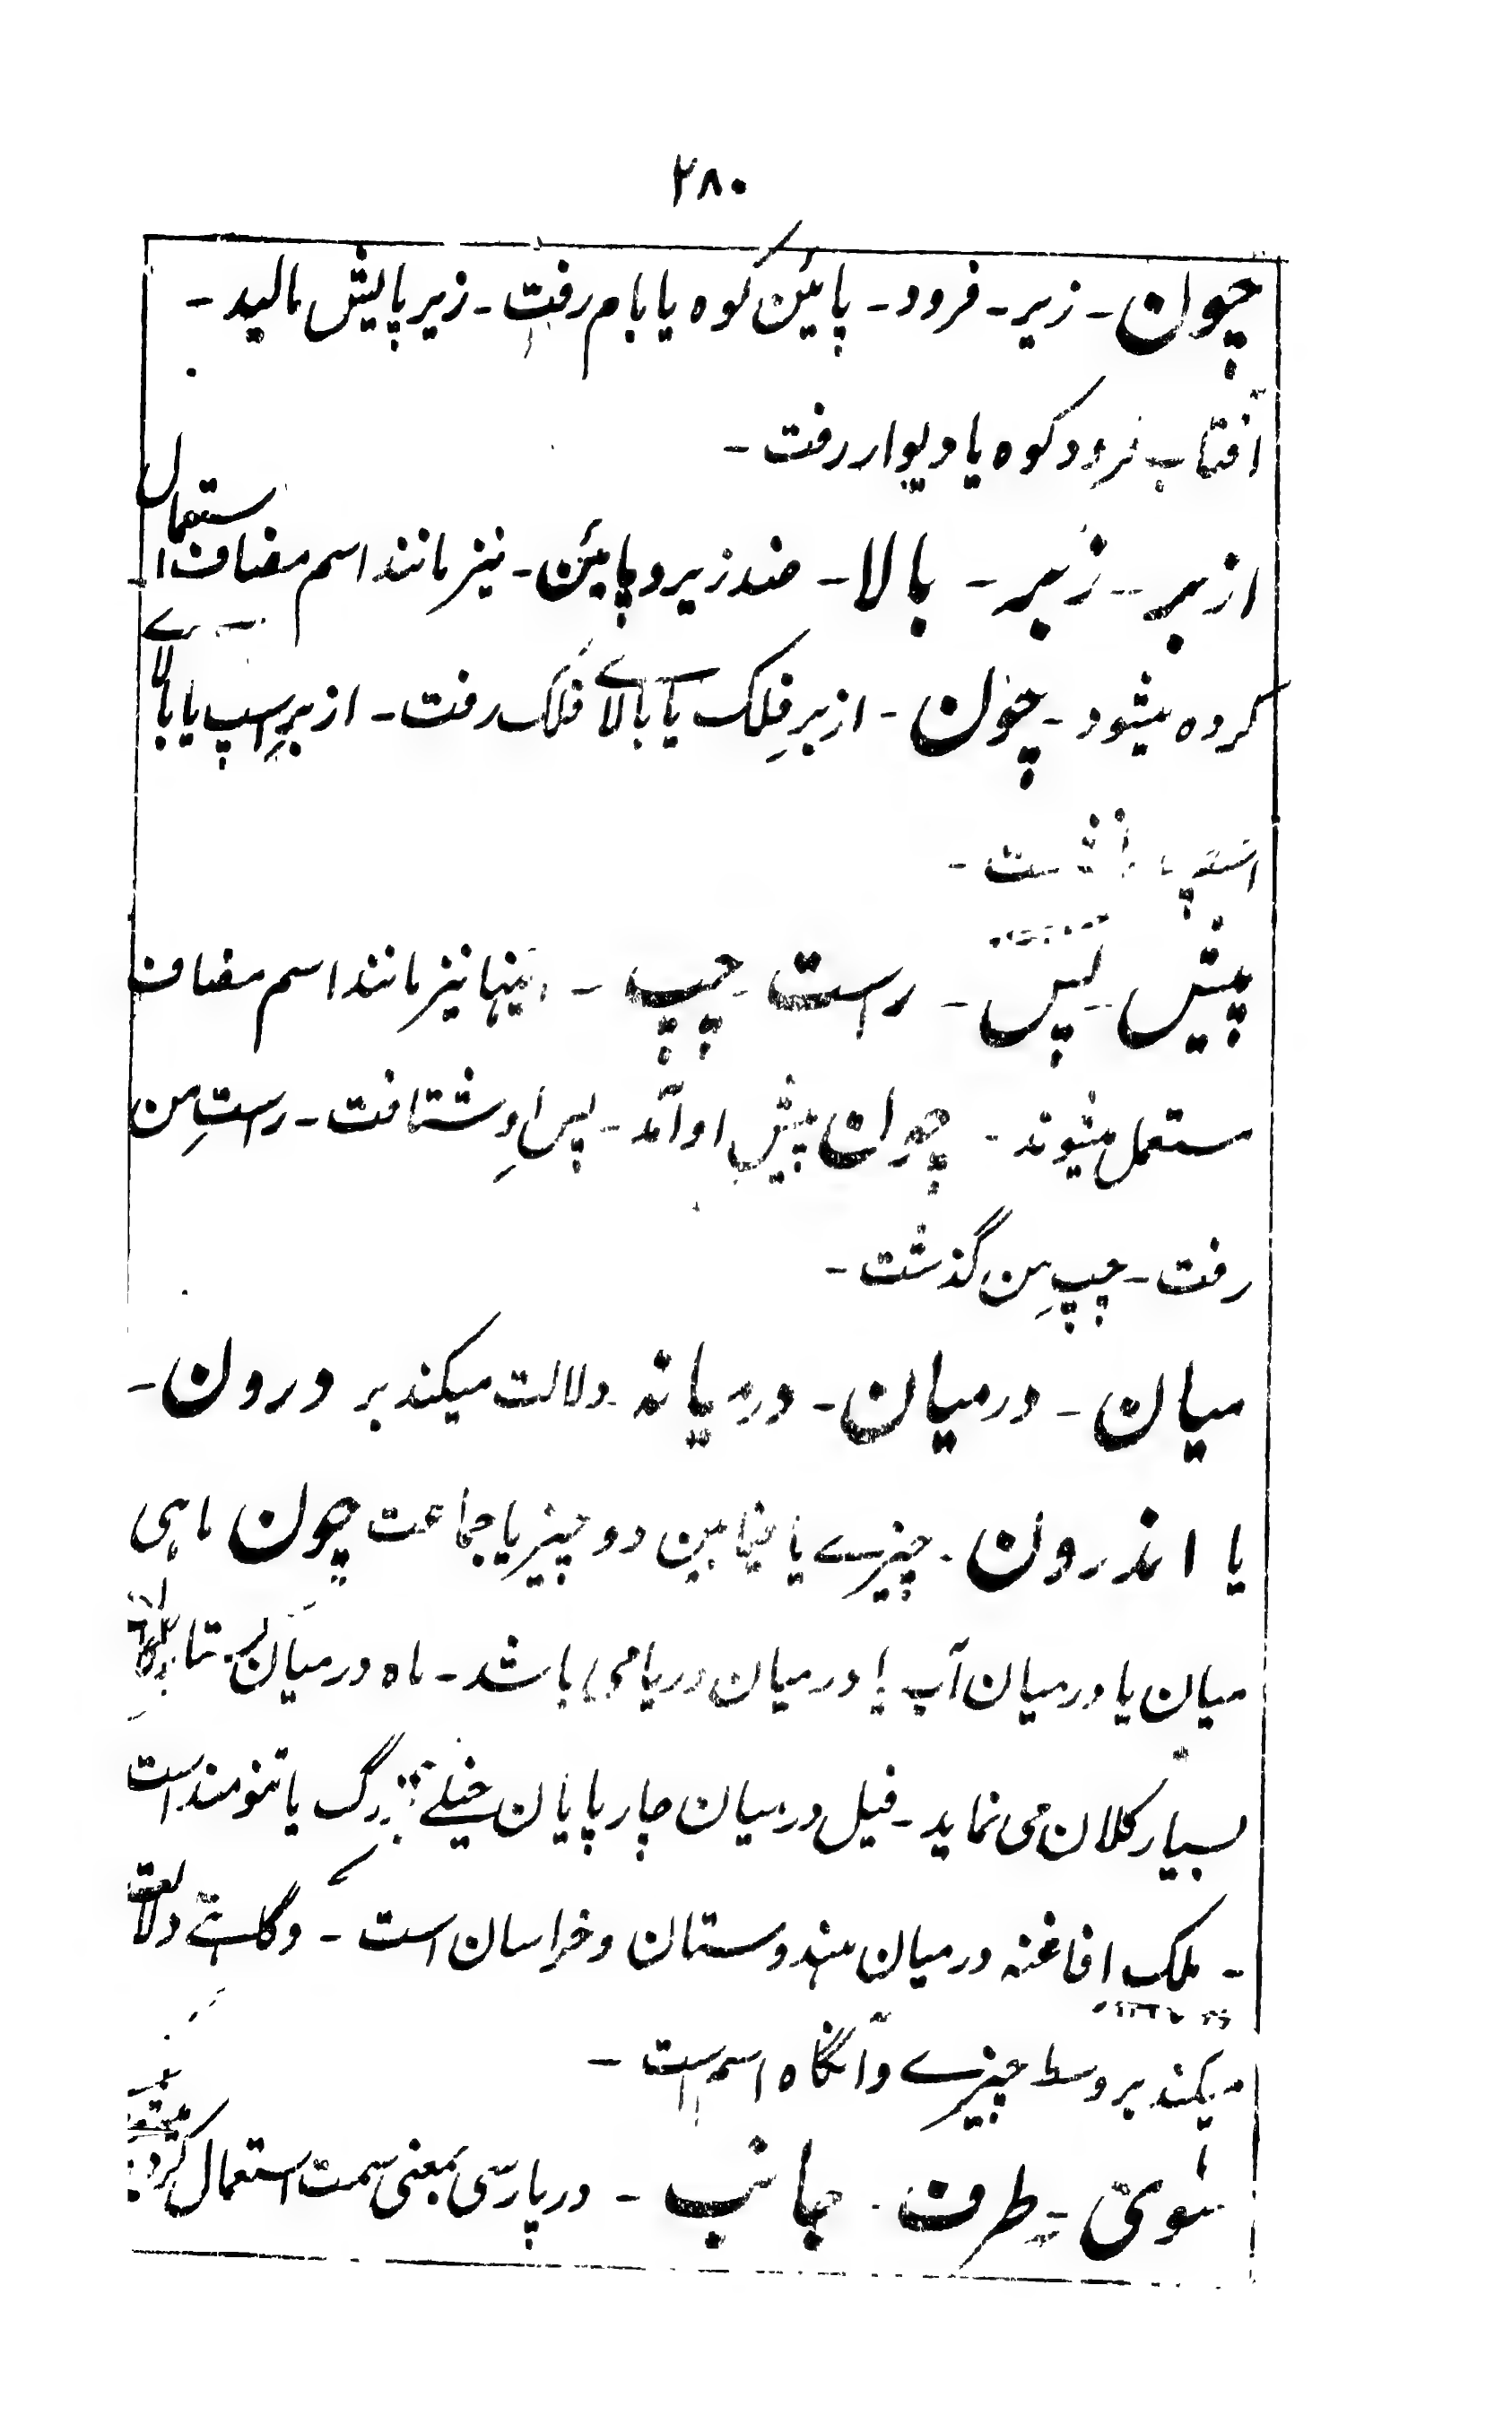 ۲۸۰
چون - زیر - فرود - پائین کوه یا بام رفت - زیر پایش مالید -
آفتاب فرود کوه یا دیوار رفت -
از بر - زبر - بالا - ضد زیر و پائین - نیز مانند اسم مضاف استعمال
کرده میشود - چون - از برِ فلک یا بالاے فلک رفت - از برِ اسپ یا بالاے
اسپ
پیش - پس - راست - چپ - اینها نیز مانند اسم مضاف
مستعمل میشوند - چون پیش او آمد - پسِ او شتافت - راستِ من
رفت - چپِ من گذشت -
میان - درمیان - درمیانه - دلالت میکند بر درون -
یا اندرون - چیزے یا فیمابین دو چیز یا جماعت چون ماهی
میان یا درمیان آب یا درمیان دریا می باشد - ماه درمیان
بسیار کلان می نماید - فیل درمیان چارپایان خیلے بزرگ یا تنومند است
- ملک افاغنه درمیان هندوستان و خراسان است - و گاہے دلالت
میکند بر وسط چیزے و آنگاه اسم است -
سوی - طرف - جانب - در پارسی بمعنی سمت استعمال کرده